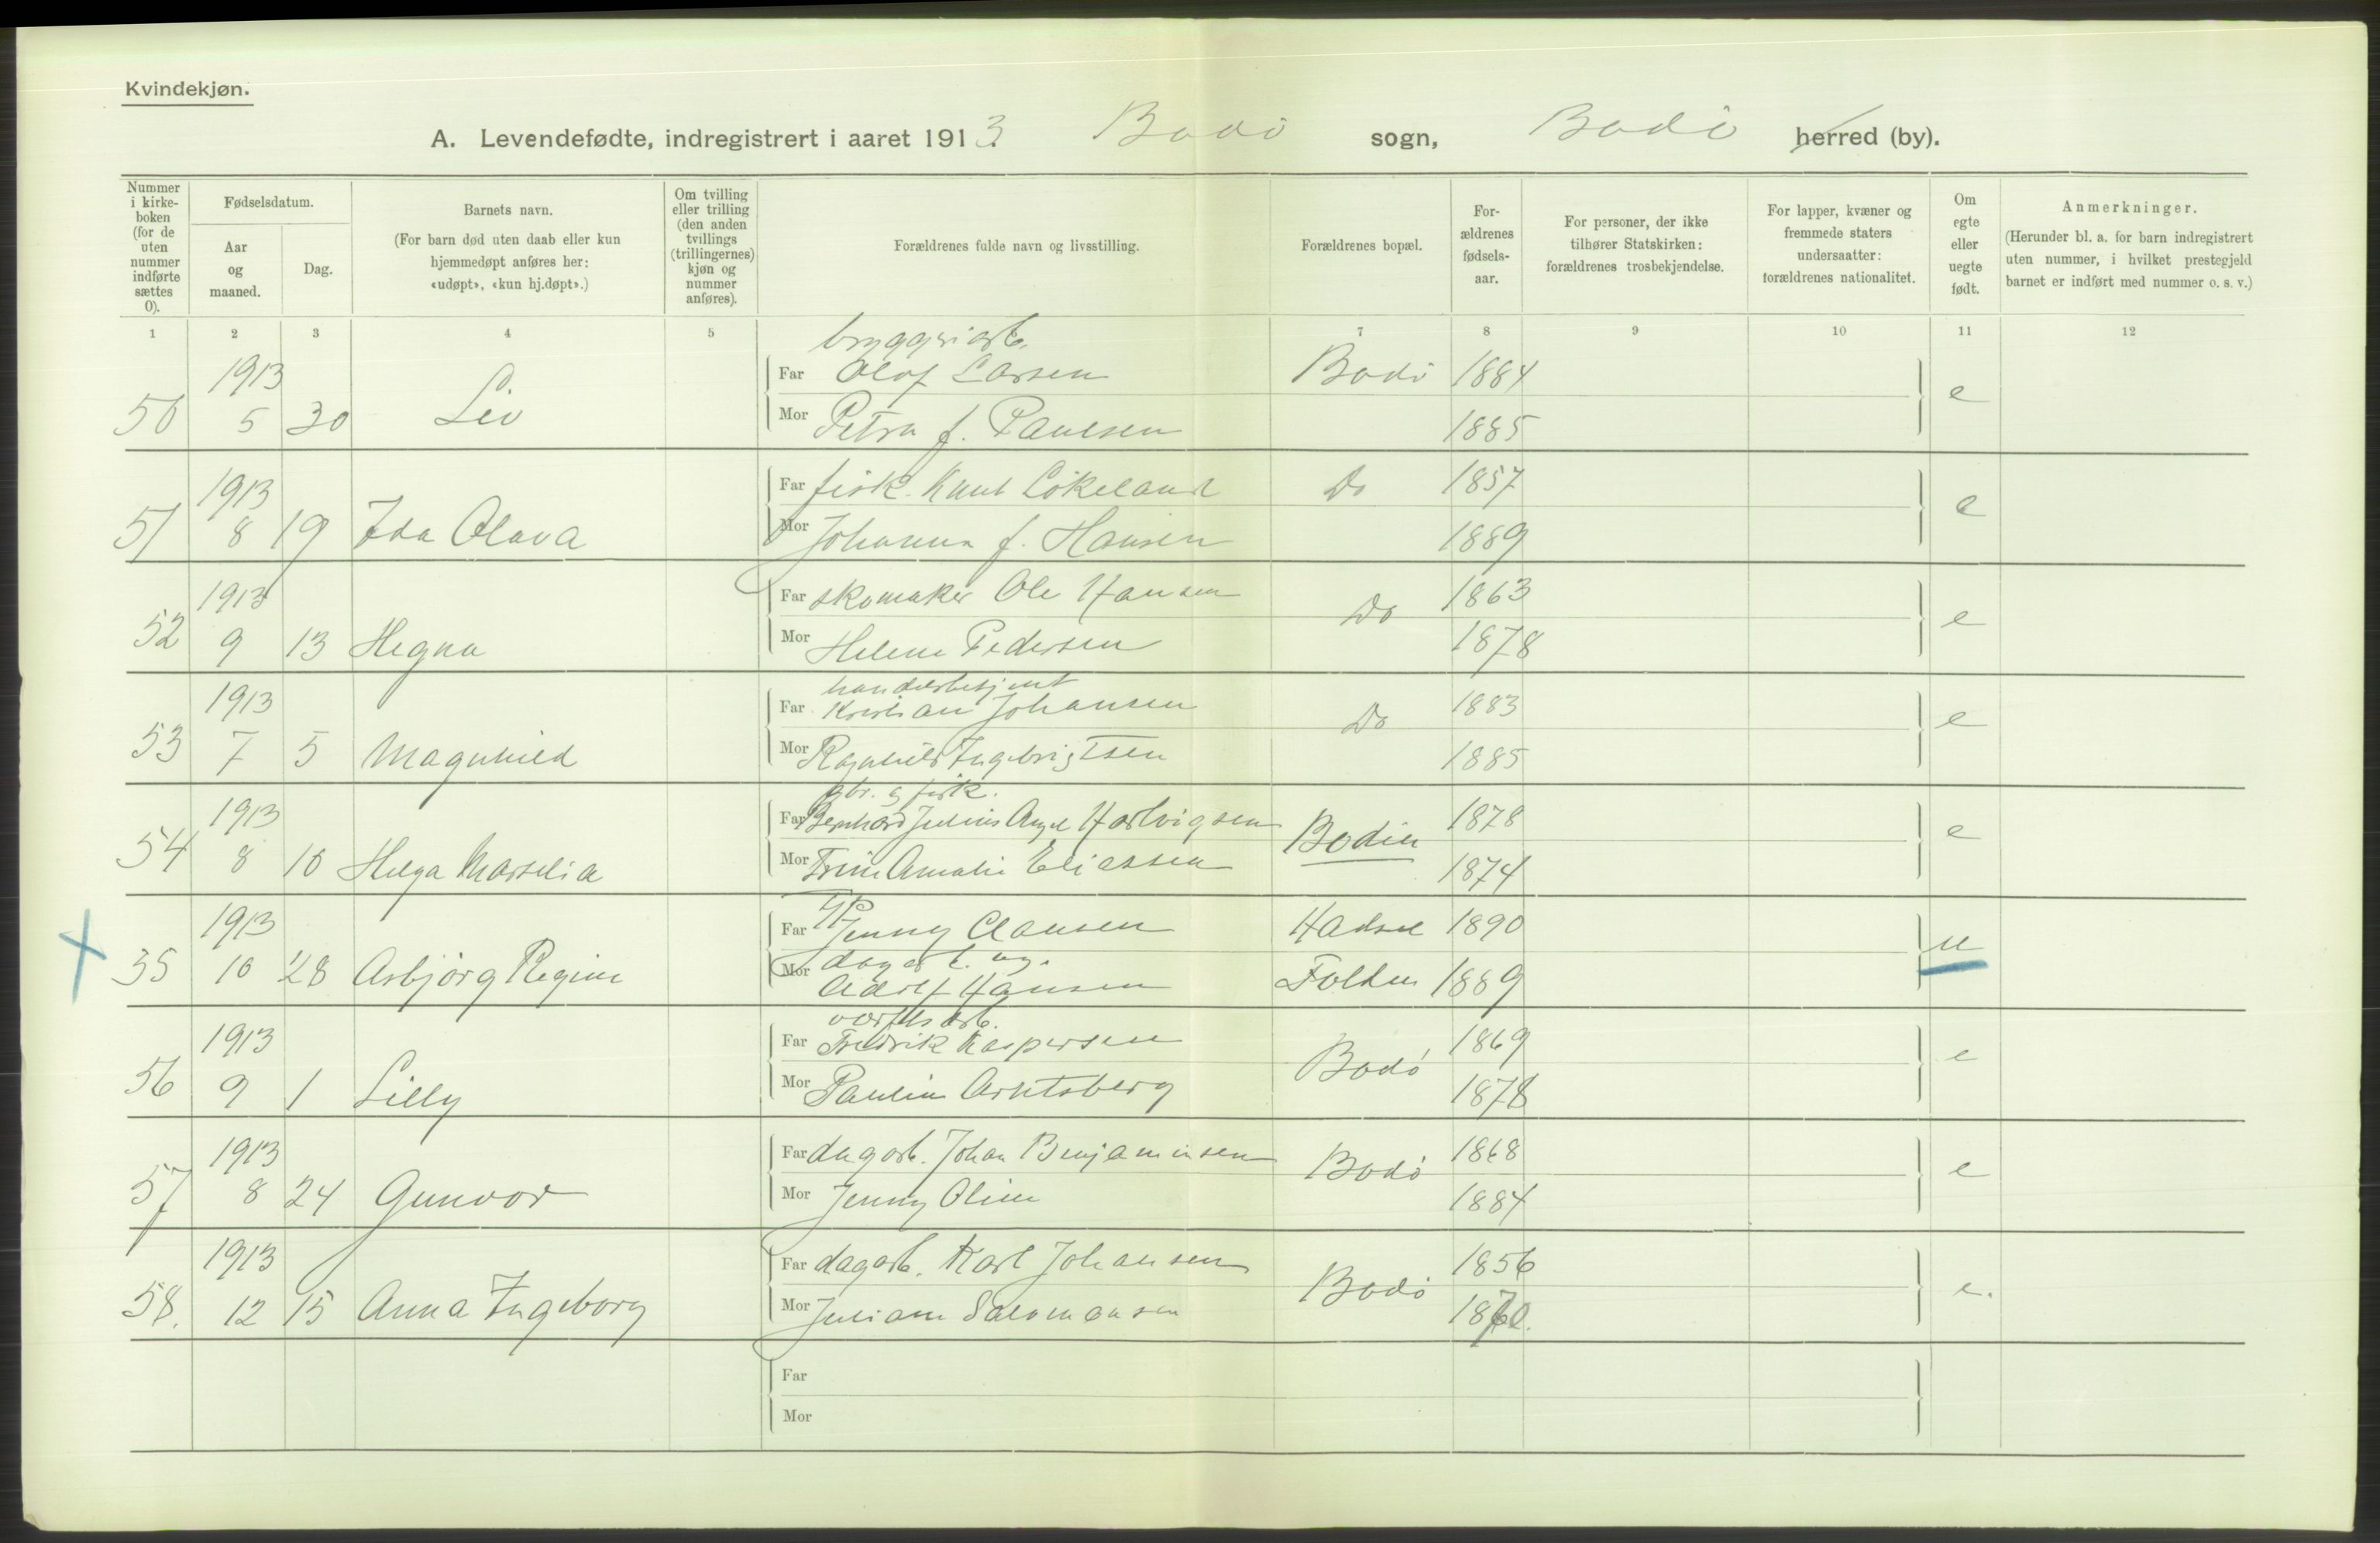 Kvindekjøn.
A. Levendefødte, indregistrert i aaret 1913. Bodö sogn, Bodö herred (by).
Nummer i kirke-boken (for de uten nummer indførte sættes 0).
Fødselsdatum.
Aar og maaned.
Dag.
Barnets navn.
(For barn død uten daab eller kun hjemmedøpt anføres her: «udøpt», «kun hj.døpt».)
Om tvilling eller trilling (den anden tvillings (trillingernes) kjøn og nummer anføres).
Forældrenes fulde navn og livsstilling.
Forældrenes bopæl.
For-ældrenes fødsels-aar.
For personer, der ikke tilhører Statskirken: forældrenes trosbekjendelse.
For lapper, kvæner og fremmede staters undersaatter: forældrenes nationalitet.
Om egte eller uegte født.
Anmerkninger.
(Herunder bl. a. for barn indregistrert uten nummer, i hvilket prestegjeld barnet er indført med nummer o. s. v.)
1 2 3 4 5 7 8 9 10 11 12
bryggeriarb.
1913 Far Olof Larsen Bodö 1884
50 5 30 Liv Mor Petra f. Paulsen 1885 e
1913 Far fisk. Knut Lökeland Do 1857
51 8 19 Ida Olava Mor Johanna f. Hansen 1889 e
1913 Far skomaker Ole Hansen Do 1863
52 9 13 Hegna Mor Helene Pedersen 1878 e
handelsbetjent
1913 Far Kristian Johansen Do 1883
53 7 5 Magnhild Mor Ragnhild Ingebrigtsen 1885 e
gbr. g fisk.
1913 Far Bernhard Julius Angel Hartvigsen Bodin 1878
54 8 10 Helga Marselia Mor Trine Amalie Eliassen 1874 e
1913 Far Jenny Clausen Hadsel 1890
55 10 28 Asbjörg Regine Mor dagarb. ug. Adolf Hansen Folden 1889 u
værftsarb.
1913 Far Fredrik Kaspersen Bodö 1869
56 9 1 Lilly Mor Pauline Arntsberg 1878 e
1913 Far dagarb. Johan Benjaminsen Bodö 1868
57 8 24 Gunvor Mor Jenny Oline 1884 e
1913 Far dagarb. Karl Johansen Bodö 1856
58. 12 15 Anna Ingeborg Mor Juliane Salomonsen e.
Far
Mor